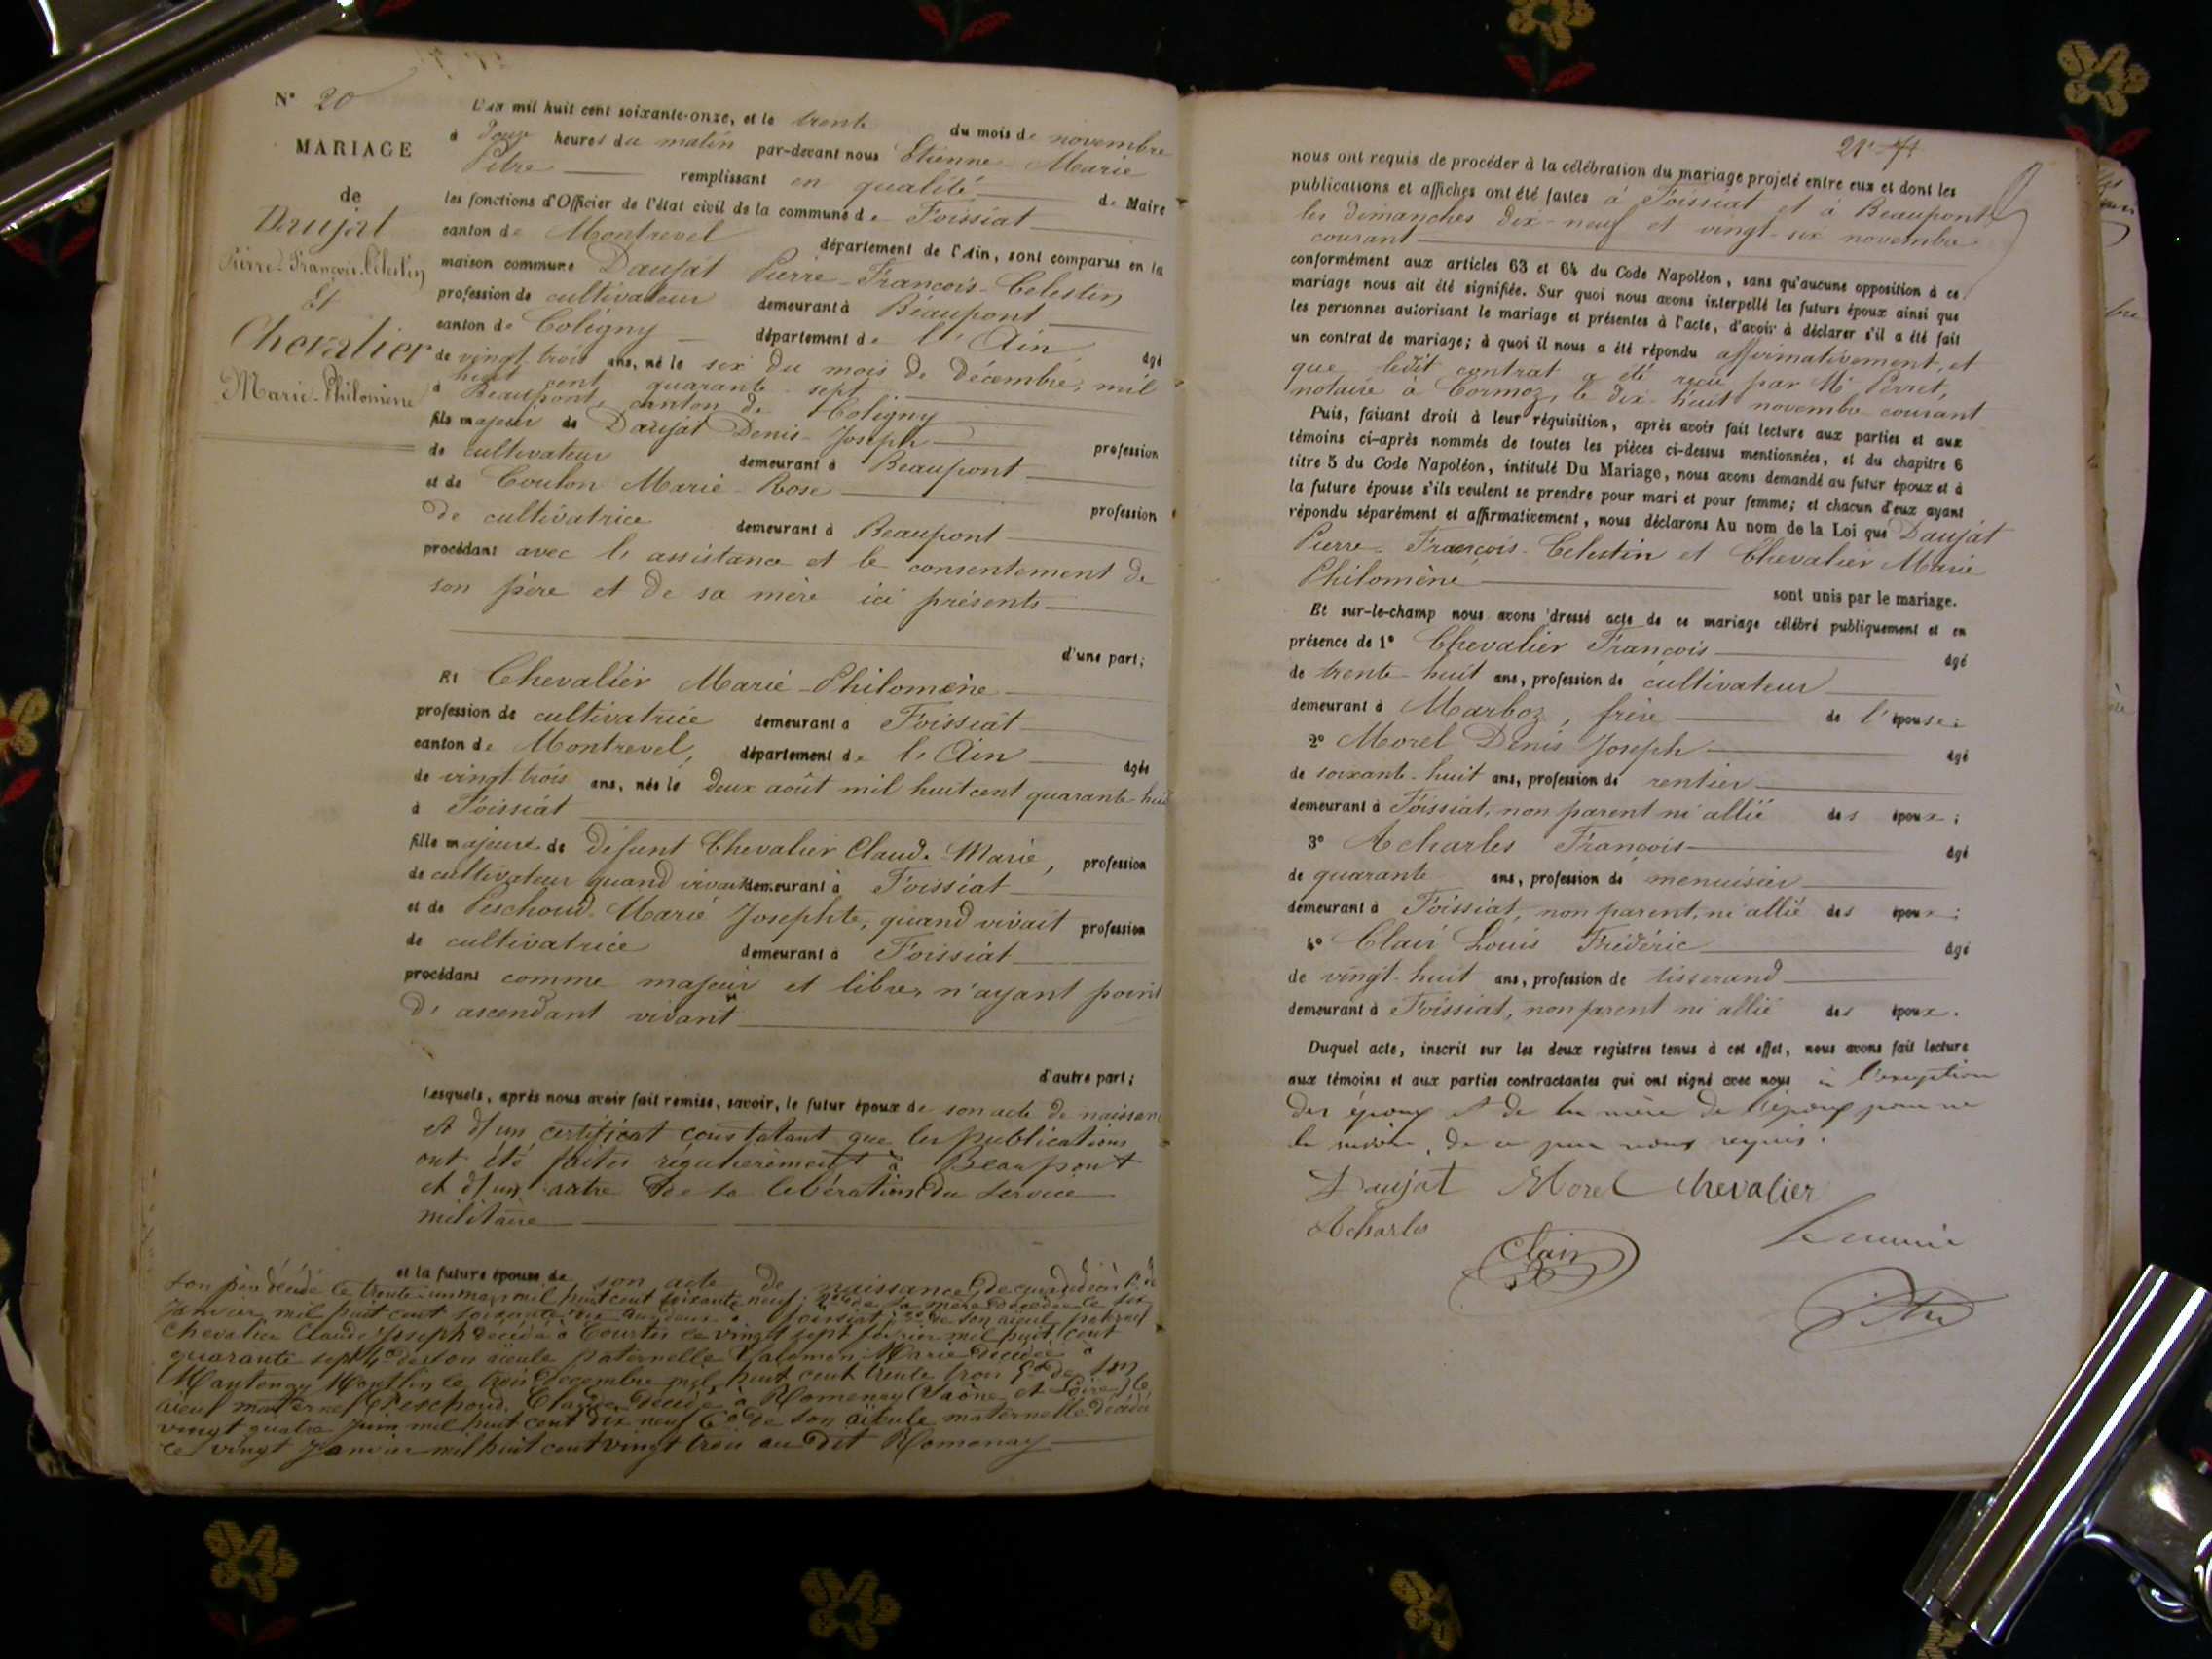 N° 20
MARIAGE
de
Daujat
Pierre-François-Célestin
Et
Chevalier
Marie-Philomène
L'an mil huit cent soixante-onze, et le trente du mois de novembre
à douze heures du matin par-devant nous Etienne-Marie
Pitre remplissant en qualité de Maire
les fonctions d'Officier de l'état civil de la commune de Foissiat
canton de Montrevel département de l'Ain, sont comparus en la
maison commune Daujat Pierre-François-Celestin
profession de cultivateur demeurant à Beaupont
canton de Coligny département de l'Ain âgé
de vingt-trois ans, né le six du mois de Décembre, mil
huit cent quarante-sept
à Beaupont, canton de Coligny
fils majeur de Daujat Denis-Joseph profession
de cultivateur demeurant à Beaupont
et de Coulon Marie-Rose profession
de cultivatrice demeurant à Beaupont
procédant avec l'assistance et le consentement de
son père et de sa mère ici présents
d'une part;
Et Chevalier Marie-Philomène
profession de cultivatrice demeurant à Foissiat
canton de Montrevel, département de l'Ain âgée
de vingt-trois ans, née le deux août mil huit cent quarante-huit
à Foissiat
fille majeure de défunt Chevalier Claude-Marie, profession
de cultivateur quand vivait demeurant à Foissiat
et de Peschoud Marie Josephte, quand vivait profession
de cultivatrice demeurant à Foissiat
procédant comme majeur et libre, n'ayant point
d'ascendant vivant
d'autre part;
Lesquels, après nous avoir fait remise, savoir, le futur époux de son acte de naissance
et d'un certificat constatant que les publications
ont été faites régulièrement à Beaupont
et d'un autre de sa libération du service
militaire
et la future épouse de son acte de naissance
son père décédé le trente un mars mil huit cent soixante neuf; 2° de sa mère décédée le six
janvier mil huit cent soixante Foissiat 3° de son aïeul paternel
Chevalier Claude Joseph décédé à Courtes le vingt sept février mil huit cent
quarante sept 4° de son aïeule paternelle Salomon Marie décédée à
Mantenay Montlin le trois Decembre mil huit cent trente trois 5° de son
aïeul maternel Peschoud Claude décédé à Romenay (Saône et Loire) le
vingt quatre juin mil huit cent dix neuf 6° de son aïeule maternelle décédée
le vingt Janvier mil huit cent vingt trois au dit Romenay
nous ont requis de procéder à la célébration du mariage projeté entre eux et dont les
publications et affiches ont été faites à Foissiat et à Beaupont
les dimanches dix-neuf et vingt-six novembre
courant
conformément aux articles 63 et 64 du Code Napoléon, sans qu'aucune opposition à ce
mariage nous ait été signifiée. Sur quoi nous avons interpellé les futurs époux ainsi que
les personnes autorisant le mariage et présentes à l'acte, d'avoir à déclarer s'il a été fait
un contrat de mariage; à quoi il nous a été répondu affirmativement, et
que ledit contrat a été reçu par Me Perret,
notaire à Cormoz, le dix-huit novembre courant
Puis, faisant droit à leur réquisition, après avoir fait lecture aux parties et aux
témoins ci-après nommés de toutes les pièces ci-dessus mentionnées, et du chapitre 6
titre 5 du Code Napoléon, intitulé Du Mariage, nous avons demandé au futur époux et à
la future épouse s'ils veulent se prendre pour mari et pour femme; et chacun d'eux ayant
répondu séparément et affirmativement, nous déclarons Au nom de la Loi que Daujat
Pierre-François-Celestin et Chevalier Marie
Philomène sont unis par le mariage.
Et sur-le-champ nous avons dressé acte de ce mariage célébré publiquement et en
présence de 1° Chevalier François âgé
de trente-huit ans, profession de cultivateur
demeurant à Marboz, frère de l'épouse;
2° Morel Denis Joseph âgé
de soixante-huit ans, profession de rentier
demeurant à Foissiat, non parent ni allié des époux;
3° Acharles François âgé
de quarante ans, profession de menuisier
demeurant à Foissiat, non parent, ni allié des époux;
4° Clair Louis Frédéric âgé
de vingt-huit ans, profession de tisserand
demeurant à Foissiat, non parent ni allié des époux.
Duquel acte, inscrit sur les deux registres tenus à cet effet, nous avons fait lecture
aux témoins et aux parties contractantes qui ont signé avec nous à l'exception
des époux et de la mère de l'époux pour ne
le savoir, de ce par nous requis.
Daujat Morel Chevalier
Acharles
Clair
Le maire
Pitre